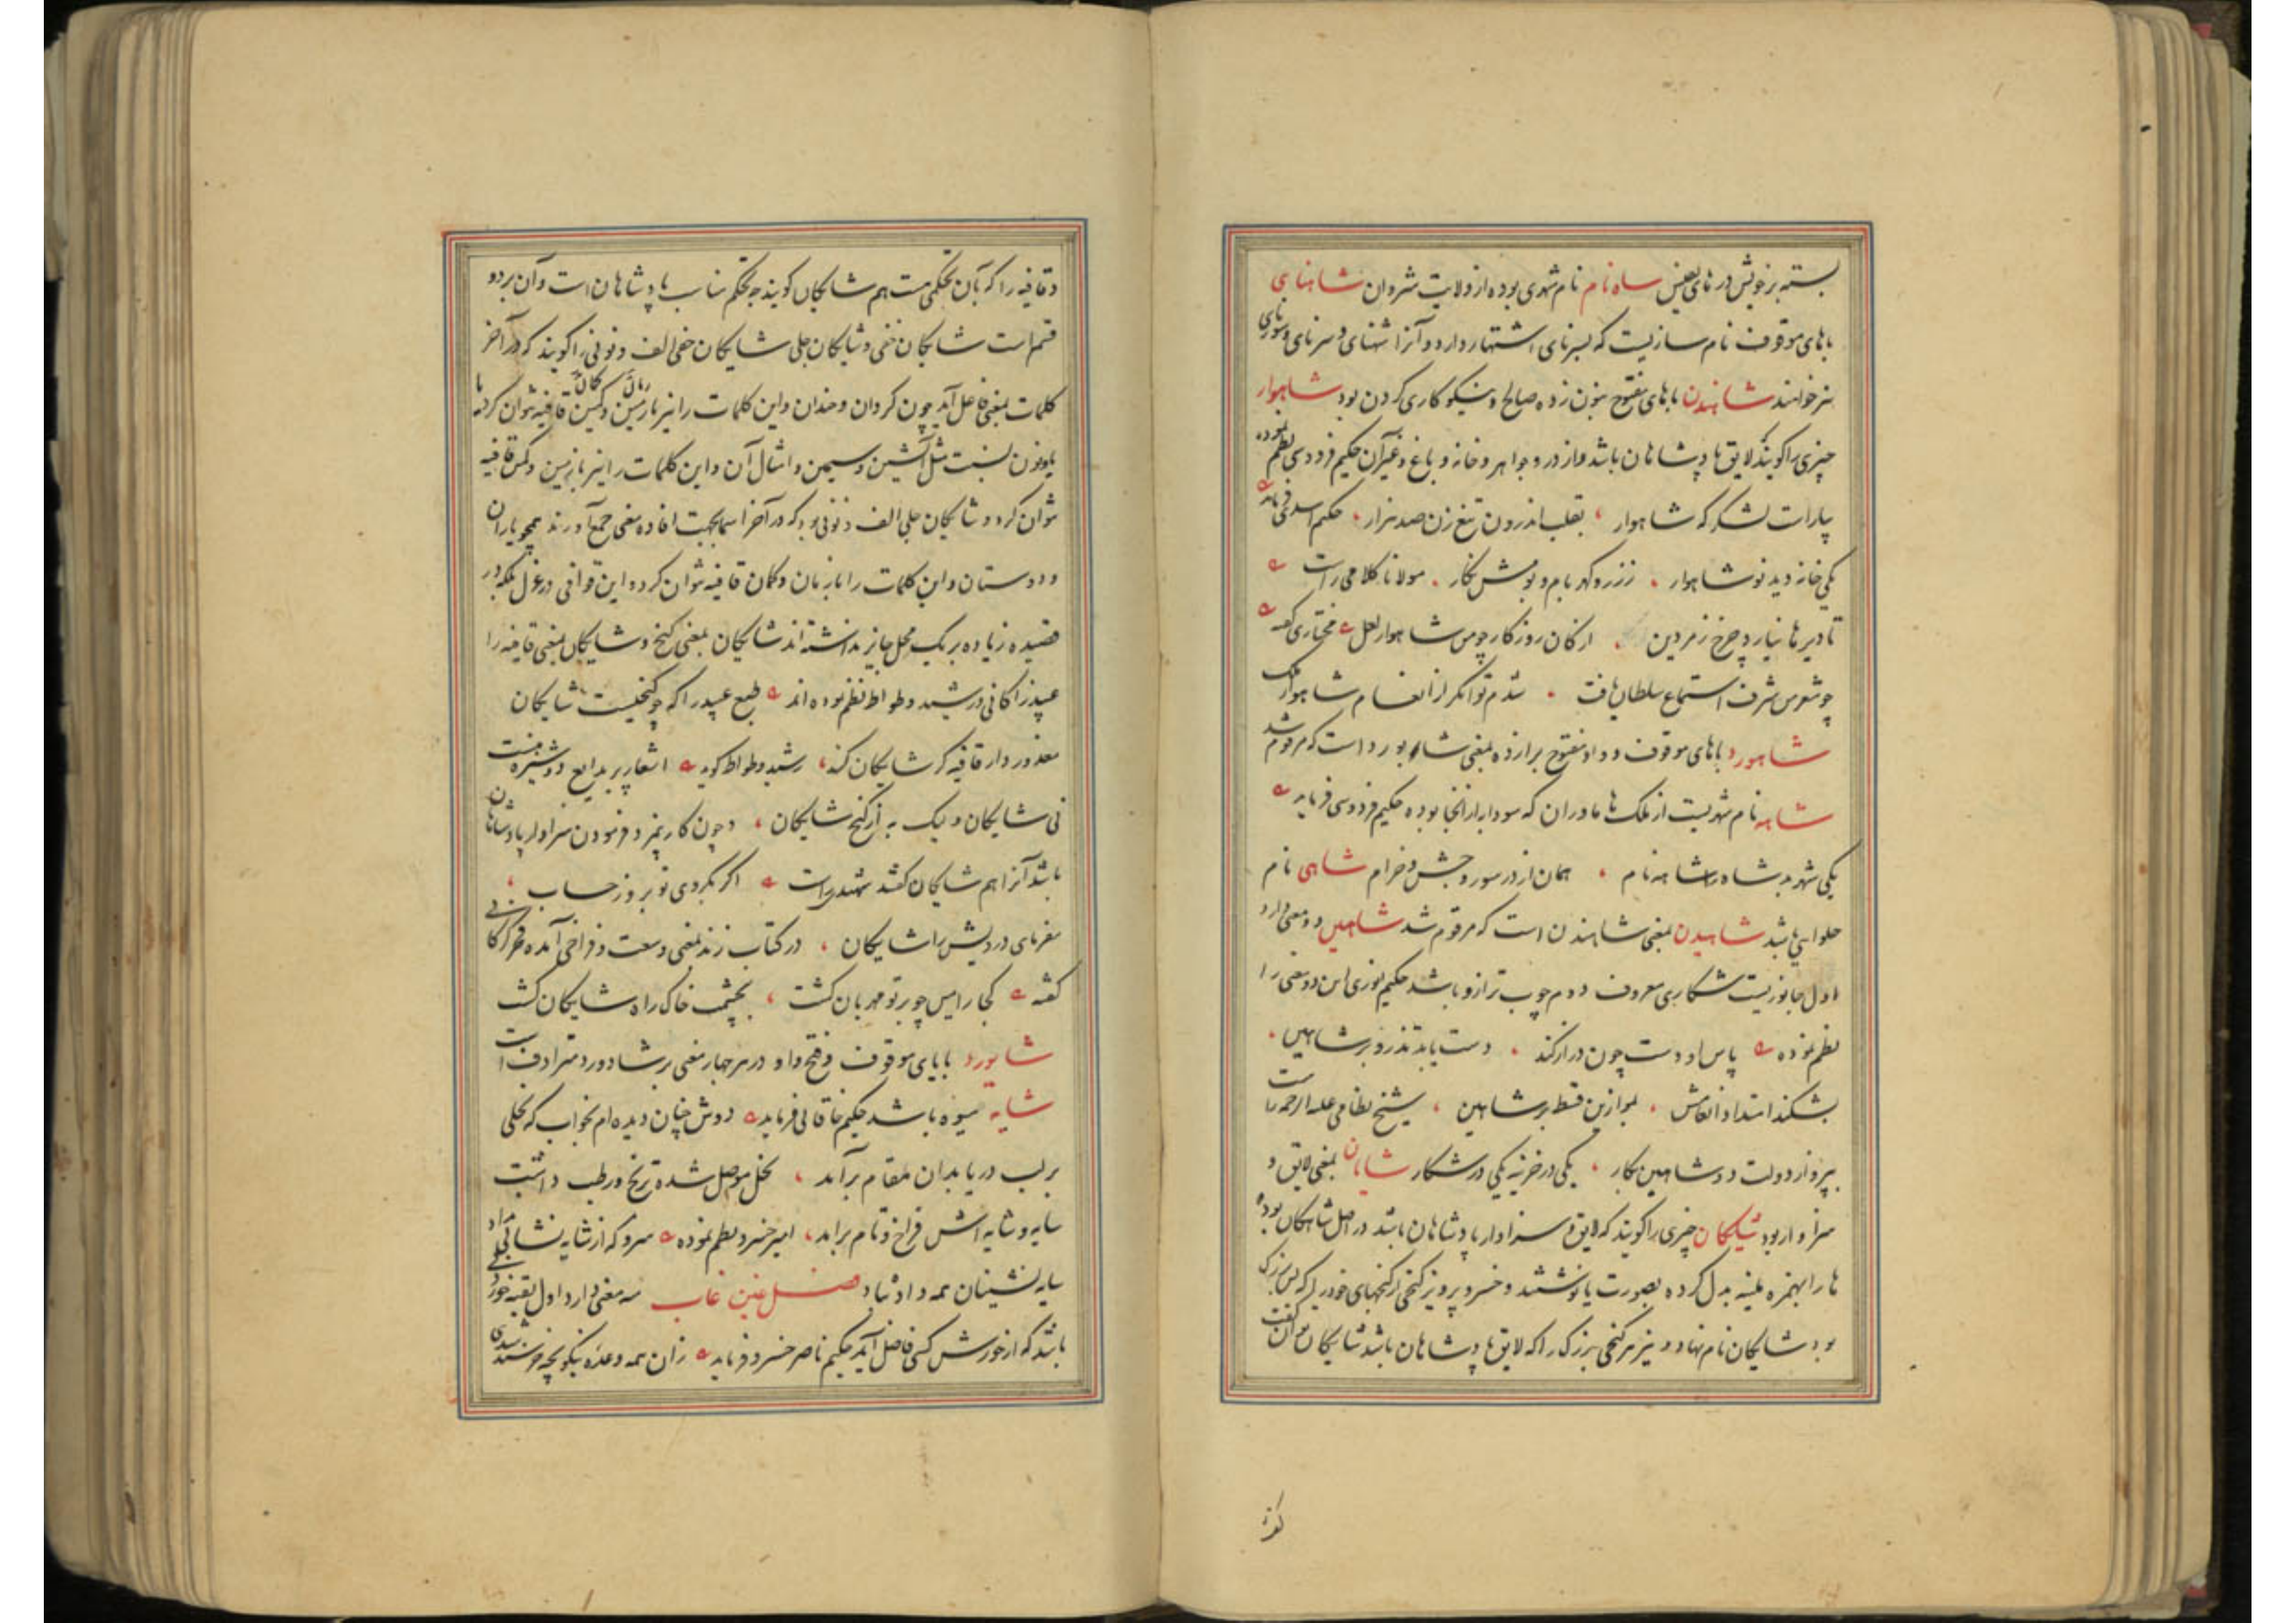 بسته بر خویش در نای لعین ساه نام نام شهری بوده از ولایت شروان شاهنای
باهای موقوف نام سازیست که بسرنای اشتهار دارد و آنرا شهنای و سرنای و سورنای
نیز خوانند شاهندن باهای مفتوح بنون زده صالح و نیکوکاری کردن بود شاهوار
چیزی را کویند که لایق پادشاهان باشد از در و جواهر و خانه و باغ و غیر آن حکیم فردوسی نظم نموده
بیاراست لشکر که شاهوار بقلب اندرون تیغ زن صد هزار حکیم اسدی فرماید
یکی خانه دید نو شاهوار ز زر و کهر بام و بومش نکار مولانا کلامی راست
تا دیرها نیارد چرخ زمردین از کان روزکار چو من شاهوار لعل مختاری کفته
چو شعر من شرف استماع سلطان یافت شدم توانکر از انعام شاهوار ملک
شاهورد باهای موقوف و واو مفتوح برا زده بمعنی شابورد است که مرقوم شد
شاهه نام شهریست از ملک هاماوران که سودابه از آنجا بوده حکیم فردوسی فرماید
یکی شهر بد شاه را شاهه نام همان از در سور و جشن و خرام شاهی نام
حلوایی باشد شاهیدن بمعنی شاهندن است که مرقوم شد شاهین دو معنی دارد
اول جانوریست شکاری معروف دوم چوب ترازو باشد حکیم انوری این دو معنی را
نظم نموده پاس او دست چون دراز کند دست یابد تذرو بر شاهین
بشکند امتداد انعامش بموازین قسط بر شاهین شیخ نظامی علیه الرحمه راست
بپرواز دولت دو شاهین بکار یکی در خزینه یکی در شکار شایان بمعنی لایق و
سزاوار بود شایکان چیزی را کویند که لایق و سزاوار پادشاهان باشد در اصل شاهکان بوده
ها را بهمزه ملینه بدل کرده بصورت یا نوشتند و خسرو پرویز کنجی از کنجهای خود را که بس بزرک
بود شایکان نام نهاد و نیز هر کنجی بزرک را که لایق پادشاهان باشد شایکان توان کفت
و قافیه را که بآن تحکمی هست هم شایکان کویند چه تحکم مناسب پادشاهان است و آن بر دو
قسم است شایکان خفی و شایکان جلی شایکان خفی الف و نونی را کویند که در آخر
کلمات بمعنی فاعل آید چون کردان و خندان و این کلمات را نیز با زمان و کمان قافیه نتوان کرد یا
یا و نون نسبت مثل آتشین و سیمین و امثال آن و این کلمات را نیز با زمین و کمین قافیه
نتوان کرد و شایکان جلی الف و نونی بود که در آخر اسما بجهت افاده معنی جمع آورند همچو یاران
و دوستان و این کلمات را با زمان و کمان قافیه نتوان کرد و این قوافی در غزل بلکه در
قصیده زیاده بر یک محل جایز نداشته اند شایکان بمعنی کنج و شایکان بمعنی قافیه را
عبید زاکانی و رشید وطواط نظم نموده اند طبع عبید را که چو کنجیست شایکان
معذور دار قافیه کر شایکان کند رشید وطواط کوید اشعار پر بدایع دوشیزه منست
نی شایکان و لیک به از کنج شایکان و چون کار بیمزد فرمودن سزاوار پادشاهان
باشد آنرا هم شایکان کفتند شهید راست اکر بکروی تو بروز حساب
مفرمای درویش را شایکان در کتاب زند بمعنی وسعت و فراخی آمده فخر کرکانی
کفته کجا رامین چو بر تو مهربان کشت بچشمت خاک راه شایکان کشت
شایورد بایای موقوف و فتح واو در هر چهار معنی بر شادورد مترادف است
شایه میوه باشد حکیم خاقانی فرماید دوش چنان دیده ام بخواب که نخلی
بر لب دریا بدان مقام برآمد نخل موصل شده ترنج و رطب داشت
سایه و شایه اش فراخ و تام برآمد امیر خسرو نظم نموده سرو که از شایه نشانی نداد
سایه نشینان همه را داد شاد فصل غین غاب سه معنی دارد اول بقیه خورد
باشد که از خورش کسی فاضل آید حکیم ناصر خسرو فرماید زان همه وعده نیکو بچه خرسند شدی